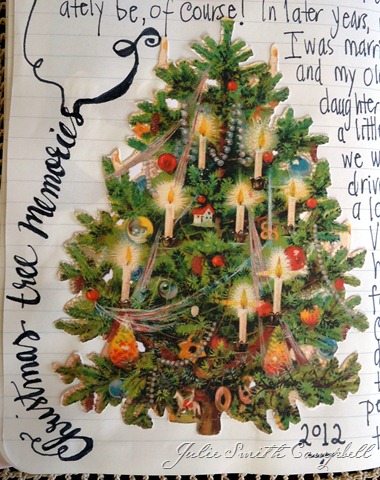 ately be, of course! In later years,
I was marr
and my ol
daughter
a little
we w
driv
a lo
Christmas tree memories
2012
Julie Smith Campbell